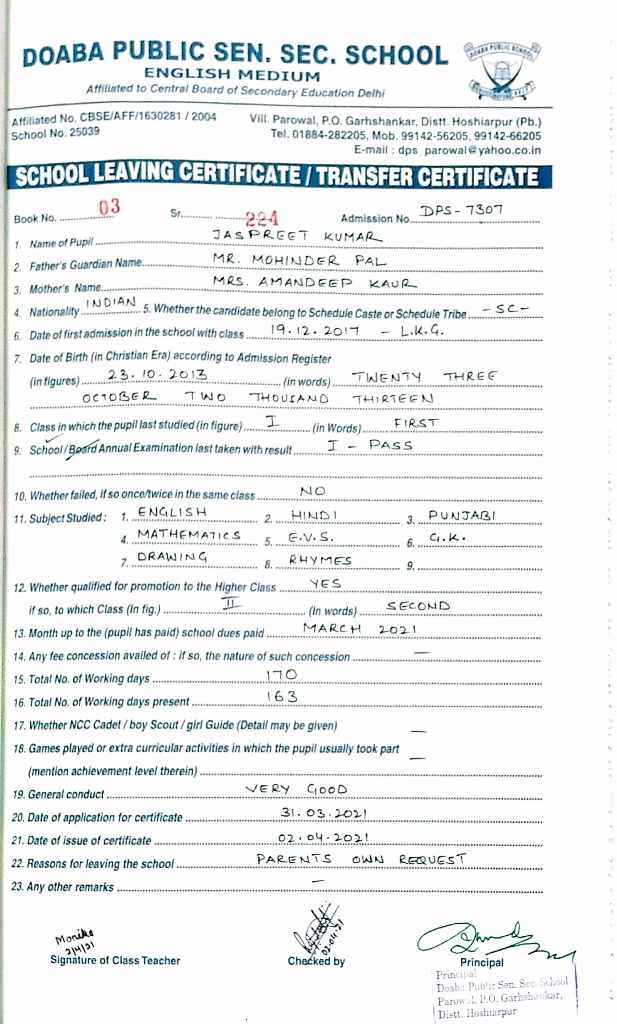 DOABA PUBLIC SEN. SEC. SCHOOL
ENGLISH MEDIUM
Affiliated to Central Board of Secondary Education Delhi
DOABA PUBLIC SCHOOL
Affiliated No. CBSE/AFF/1630281 / 2004
School No. 25039
Vill. Parowal, P.O. Garhshankar, Distt. Hoshiarpur (Pb.)
Tel. 01884-282205, Mob. 99142-56205, 99142-66205
E-mail : dps_parowal@yahoo.co.in
SCHOOL LEAVING CERTIFICATE / TRANSFER CERTIFICATE
Book No. 03 Sr. 224 Admission No. DPS-7307
1. Name of Pupil JASPREET KUMAR
2. Father's Guardian Name MR. MOHINDER PAL
3. Mother's Name MRS. AMANDEEP KAUR
4. Nationality INDIAN 5. Whether the candidate belong to Schedule Caste or Schedule Tribe -SC-
6. Date of first admission in the school with class 19.12.2017 - L.K.G.
7. Date of Birth (in Christian Era) according to Admission Register
(in figures) 23.10.2013 (in words) TWENTY THREE
OCTOBER TWO THOUSAND THIRTEEN
8. Class in which the pupil last studied (in figure) I (in Words) FIRST
9. School / Board Annual Examination last taken with result I - PASS
10. Whether failed, if so once/twice in the same class NO
11. Subject Studied : 1. ENGLISH 2. HINDI 3. PUNJABI
4. MATHEMATICS 5. E.V.S. 6. G.K.
7. DRAWING 8. RHYMES 9.
12. Whether qualified for promotion to the Higher Class YES
if so, to which Class (In fig.) II (In words) SECOND
13. Month up to the (pupil has paid) school dues paid MARCH 2021
14. Any fee concession availed of : if so, the nature of such concession —
15. Total No. of Working days 170
16. Total No. of Working days present 163
17. Whether NCC Cadet / boy Scout / girl Guide (Detail may be given) —
18. Games played or extra curricular activities in which the pupil usually took part —
(mention achievement level therein)
19. General conduct VERY GOOD
20. Date of application for certificate 31.03.2021
21. Date of issue of certificate 02.04.2021
22. Reasons for leaving the school PARENTS OWN REQUEST
23. Any other remarks —
Monika
2/4/21
02.04.21
Signature of Class Teacher Checked by Principal
Principal
Doaba Public Sen. Sec. School
Parowal, P.O. Garhshankar,
Distt. Hoshiarpur